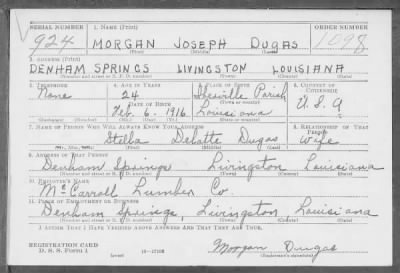 SERIAL NUMBER 1. NAME (Print) ORDER NUMBER
924 MORGAN JOSEPH DUGAS 1098
(First) (Middle) (Last)
2. ADDRESS (Print)
DENHAM SPRINGS LIVINGSTON LOUISIANA
(Number and street or R. F. D. number) (Town) (County) (State)
3. TELEPHONE 4. AGE IN YEARS 5. PLACE OF BIRTH 6. COUNTRY OF CITIZENSHIP
None 24 Parish
DATE OF BIRTH (Town or county)
Feb. 6. 1916 Louisiana U.S.A
(Exchange) (Number) (Mo.) (Day) (Yr.) (State or country)
7. NAME OF PERSON WHO WILL ALWAYS KNOW YOUR ADDRESS 8. RELATIONSHIP OF THAT PERSON
Stella Dugas wife
(Mr., Mrs., Miss) (First) (Middle) (Last)
9. ADDRESS OF THAT PERSON
Denham Springs Livingston Louisiana
(Number and street or R. F. D. number) (Town) (County) (State)
10. EMPLOYER'S NAME
McCarroll Lumber Co.
11. PLACE OF EMPLOYMENT OR BUSINESS
Denham Springs, Livingston Louisiana
(Number and street or R. F. D. number) (Town) (County) (State)
I AFFIRM THAT I HAVE VERIFIED ABOVE ANSWERS AND THAT THEY ARE TRUE.
REGISTRATION CARD
D. S. S. Form 1 Morgan Dugas
(over) (Registrant's signature)